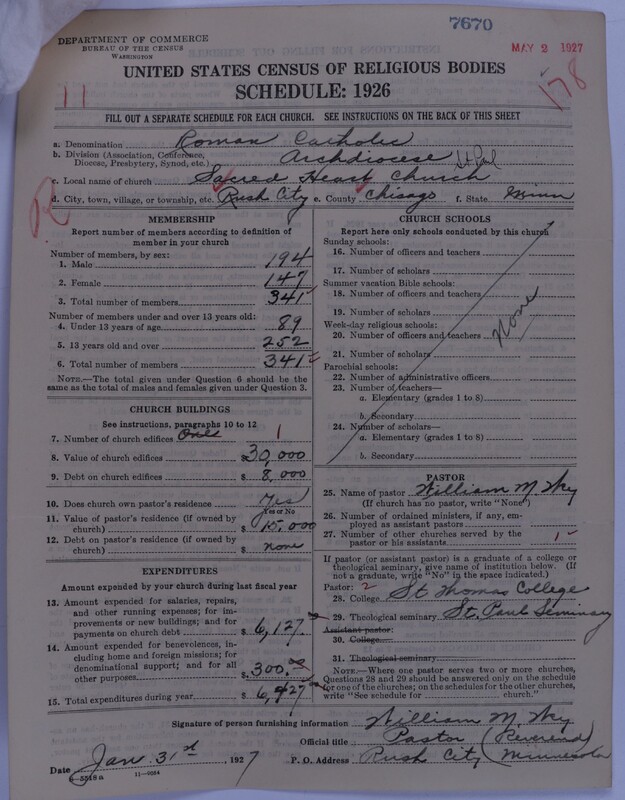 7670
DEPARTMENT OF COMMERCE
BUREAU OF THE CENSUS
WASHINGTON
MAY 2 1927
UNITED STATES CENSUS OF RELIGIOUS BODIES
SCHEDULE: 1926
11
178
FILL OUT A SEPARATE SCHEDULE FOR EACH CHURCH. SEE INSTRUCTIONS ON THE BACK OF THIS SHEET
a. Denomination Roman Catholic
b. Division (Association, Conference, Diocese, Presbytery, Synod, etc.) Archdiocese St Paul
c. Local name of church Sacred Heart Church
R
d. City, town, village, or township, etc. Rush City e. County Chisago f. State Minn
MEMBERSHIP
Report number of members according to definition of
member in your church
Number of members, by sex:
1. Male 194
2. Female 147
3. Total number of members 341
Number of members under and over 13 years old:
4. Under 13 years of age 89
5. 13 years old and over 252
6. Total number of members 341
NOTE.—The total given under Question 6 should be the
same as the total of males and females given under Question 3.
CHURCH BUILDINGS
See instructions, paragraphs 10 to 12
7. Number of church edifices 1
8. Value of church edifices $30,000
9. Debt on church edifices $ 8,000
10. Does church own pastor's residence Yes
Yes or No
11. Value of pastor's residence (if owned by
church) $ 15,000
12. Debt on pastor's residence (if owned by
church) $ none
EXPENDITURES
Amount expended by your church during last fiscal year
13. Amount expended for salaries, repairs,
and other running expenses; for im-
provements or new buildings; and for
payments on church debt $ 6,127.
14. Amount expended for benevolences, in-
cluding home and foreign missions; for
denominational support; and for all
other purposes $ 300.
15. Total expenditures during year $ 6,427
CHURCH SCHOOLS
Report here only schools conducted by this church
Sunday schools:
16. Number of officers and teachers
17. Number of scholars
Summer vacation Bible schools:
18. Number of officers and teachers
19. Number of scholars
Week-day religious schools:
20. Number of officers and teachers
None
21. Number of scholars
Parochial schools:
22. Number of administrative officers
23. Number of teachers—
a. Elementary (grades 1 to 8)
b. Secondary
24. Number of scholars—
a. Elementary (grades 1 to 8)
b. Secondary
PASTOR
25. Name of pastor William M.
(If church has no pastor, write "None")
26. Number of ordained ministers, if any, em-
ployed as assistant pastors
27. Number of other churches served by the
pastor or his assistants 1
If pastor (or assistant pastor) is a graduate of a college or
theological seminary, give name of institution below. (If
not a graduate, write "No" in the space indicated.)
Pastor: 2
28. College St Thomas College
29. Theological seminary St. Paul Seminary
Assistant pastor:
30. College
31. Theological seminary
NOTE.—Where one pastor serves two or more churches,
Questions 28 and 29 should be answered only on the schedule
for one of the churches; on the schedules for the other churches,
write "See schedule for church."
Signature of person furnishing information William M.
Official title Pastor (Reverend)
Date Jan. 31st, 1927 P. O. Address Rush City Minnesota
8-5518a 11-9084